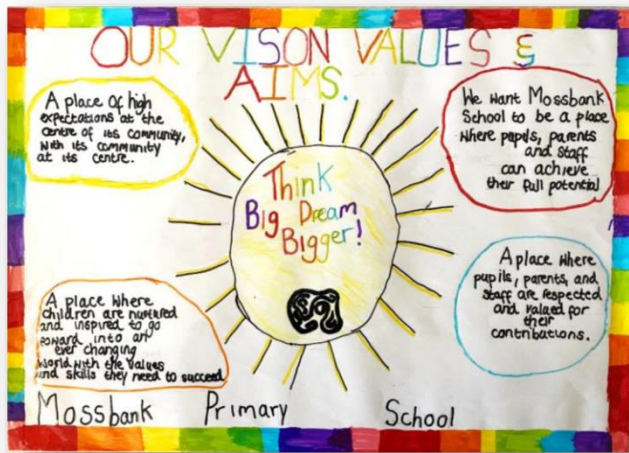 OUR VISON VALUES &
AIMS.
A place Of high
expectations at the
centre of its community,
with its community
at its centre.
We want Mossbank
School to be a place
where pupils, parents
and staff
can achieve
their full potential
Think
Big Dream
Bigger!
A place where
children are nurtured
and inspired to go
foward into an
ever changing
world with the values
and skills they need to succeed
A place where
pupils, parents, and
staff are respected
and valued for
their
contributions.
Mossbank Primary School